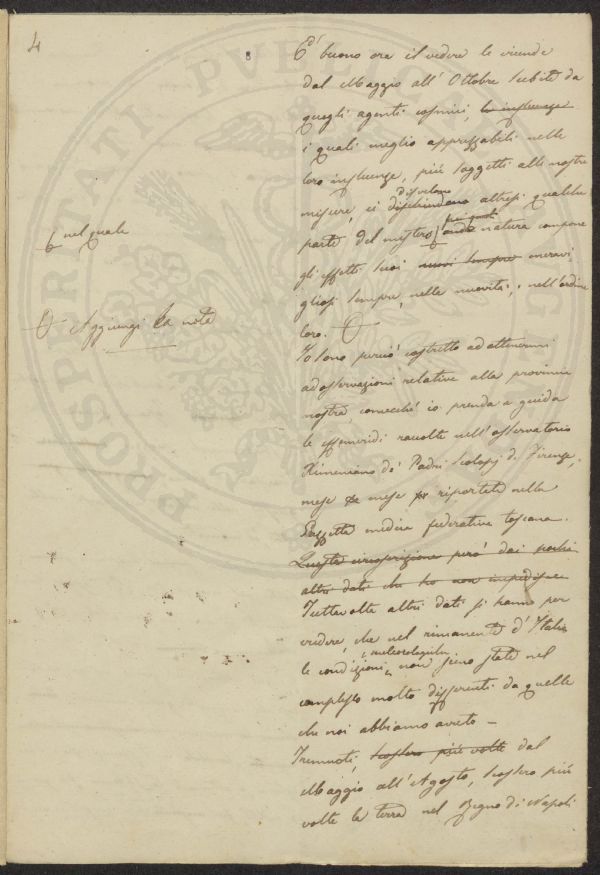 4
8
E' buono ora il vedere le vicende
dal Maggio all' Ottobre subite da
quegli agenti cosmici, le influenze
i quali meglio apprezzabili nelle
loro influenze, più soggetti alle nostre
disvelano
misure, ci dischiudano altresì qualche
pei quali
parte del mistero onde natura compone
gli effetti suoi nuovi sempre meravi
gliosi sempre, nelle novità, nell'ordine
loro.
nel quale
Aggiungi la nota
Io sono perciò costretto ad attenermi
ad osservazioni relative alla provincia
nostra comecché io prenda a guida
le effemeridi raccolte nell'osservatorio
Ximeniano de' Padri Scolopj di Firenze,
mese mese riportate nella
Gazzetta medica federativa toscana.
Questa circoscrizione però dai pochi
altri dati che ho non impedisce
Tuttavolta altri dati si hanno per
credere, che nel rimanente d'Italia
meteorologiche
le condizioni non sieno state nel
complesso molto differenti da quelle
che noi abbiamo avuto —
Tremuoti, scossero più volte dal
Maggio all'Agosto, scossero più
volte la terra nel Regno di Napoli
PROSPERITATI PVBL